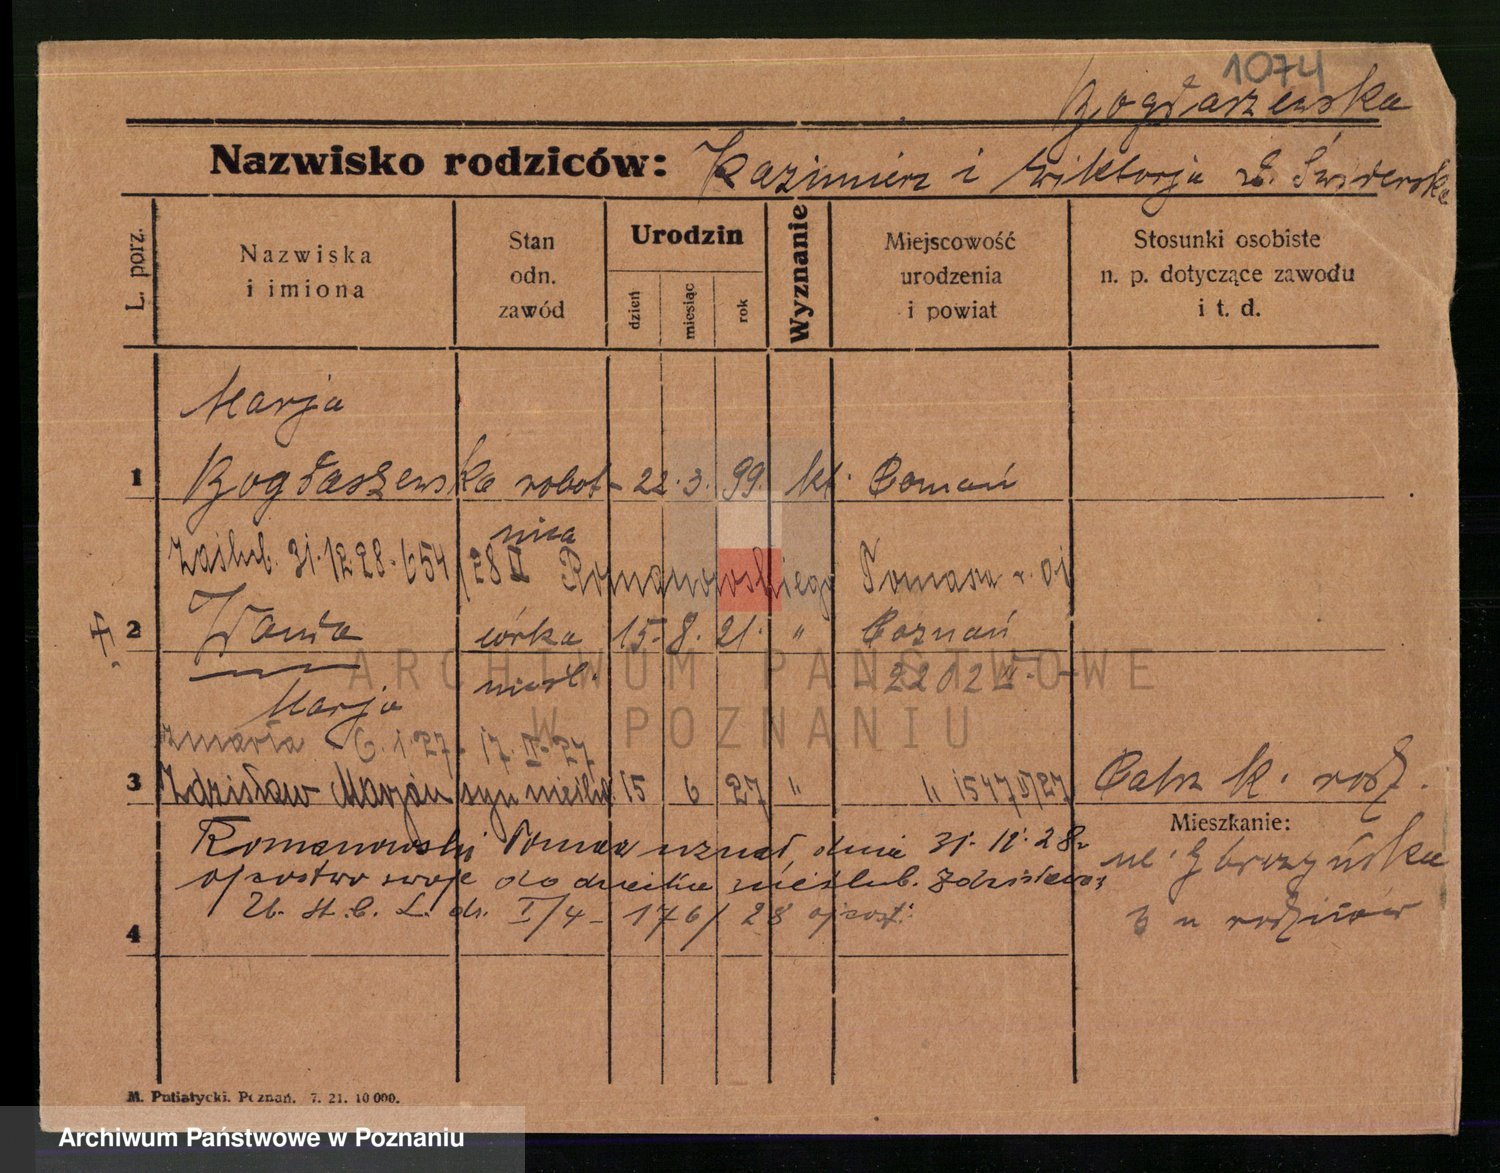 1074
Bogdaszewska
Nazwisko rodziców: Kazimierz i Wiktorja z d. Świderska
L. porz.
Nazwiska
i imiona
Stan
odn.
zawód
Urodzin
dzień
miesiąc
rok
Wyznanie
Miejscowość
urodzenia
i powiat
Stosunki osobiste
n. p. dotyczące zawodu
i t. d.
Marja
1 Bogdaszewska robot- 22. 3. 99. kt. Poznań
nica
Zaślub. 31.12.28. 654/28 II Romanowskiego Tomasza
2 Wanda córka 15. 8. 21. " Poznań
nieśl. 2202 II
Marja
zmarła 6.1.27 - 17.II.27
3 Zdzisław Marjan syn nieślub. 15 6 27 " " 1547 /27
Patrz k. rodz.
Romanowski Tomasz uznał dnia 31.12.28
Mieszkanie:
ojcostwo swoje do dziecka nieślub. Zdzisława
ul.
4
I/4 - 176/28 ojcost.
3 u rodziców
M. Putiatycki. Poznań. 7. 21. 10 000.
ARCHIWUM PAŃSTWOWE
W POZNANIU
Archiwum Państwowe w Poznaniu